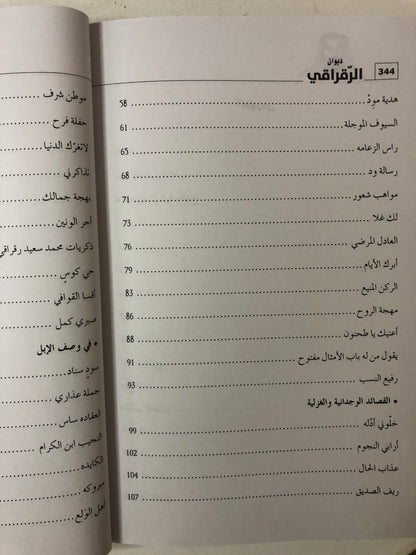 344
ديوان
الرّقراقي
هدية مودّ 58
السيوف الموجلة 61
راس الزعامه 65
رسالة ود 68
مواهب شعور 71
لك غلا 73
العادل المرضي 76
أبرك الأيام 79
الركن المنيع 83
مهجة الروح 86
أعنيك يا طحنون 88
يقول من له باب الأمثال مفتوح 91
رفيع النسب 93
• القصائد الوجدانية والغزلية
خلّوني أدّله 99
أرابي النجوم 102
عذاب الحال 104
ريف الصديق 107
موطن شرف
حفلة فرح
لاتغرّك الدنيا
تذاكرني
بهجة جمالك
أجر الونين
ذكريات محمد سعيد رقراقي
جي كوس
أفسا القوافي
صبري كمل
• في وصف الإبل
سود سناد
جملة عذاري
العقاده ساس
النجيب ابن الكرام
الكايده
مبروكه
أهل الولع